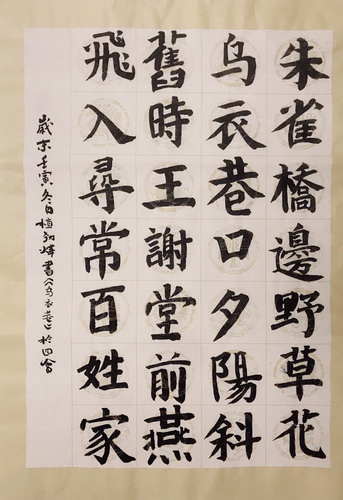 朱雀橋邊野草花
乌衣巷口夕陽斜
舊時王謝堂前燕
飛入尋常百姓家
歲末壬寅冬日植初炜書《乌衣巷》於四會